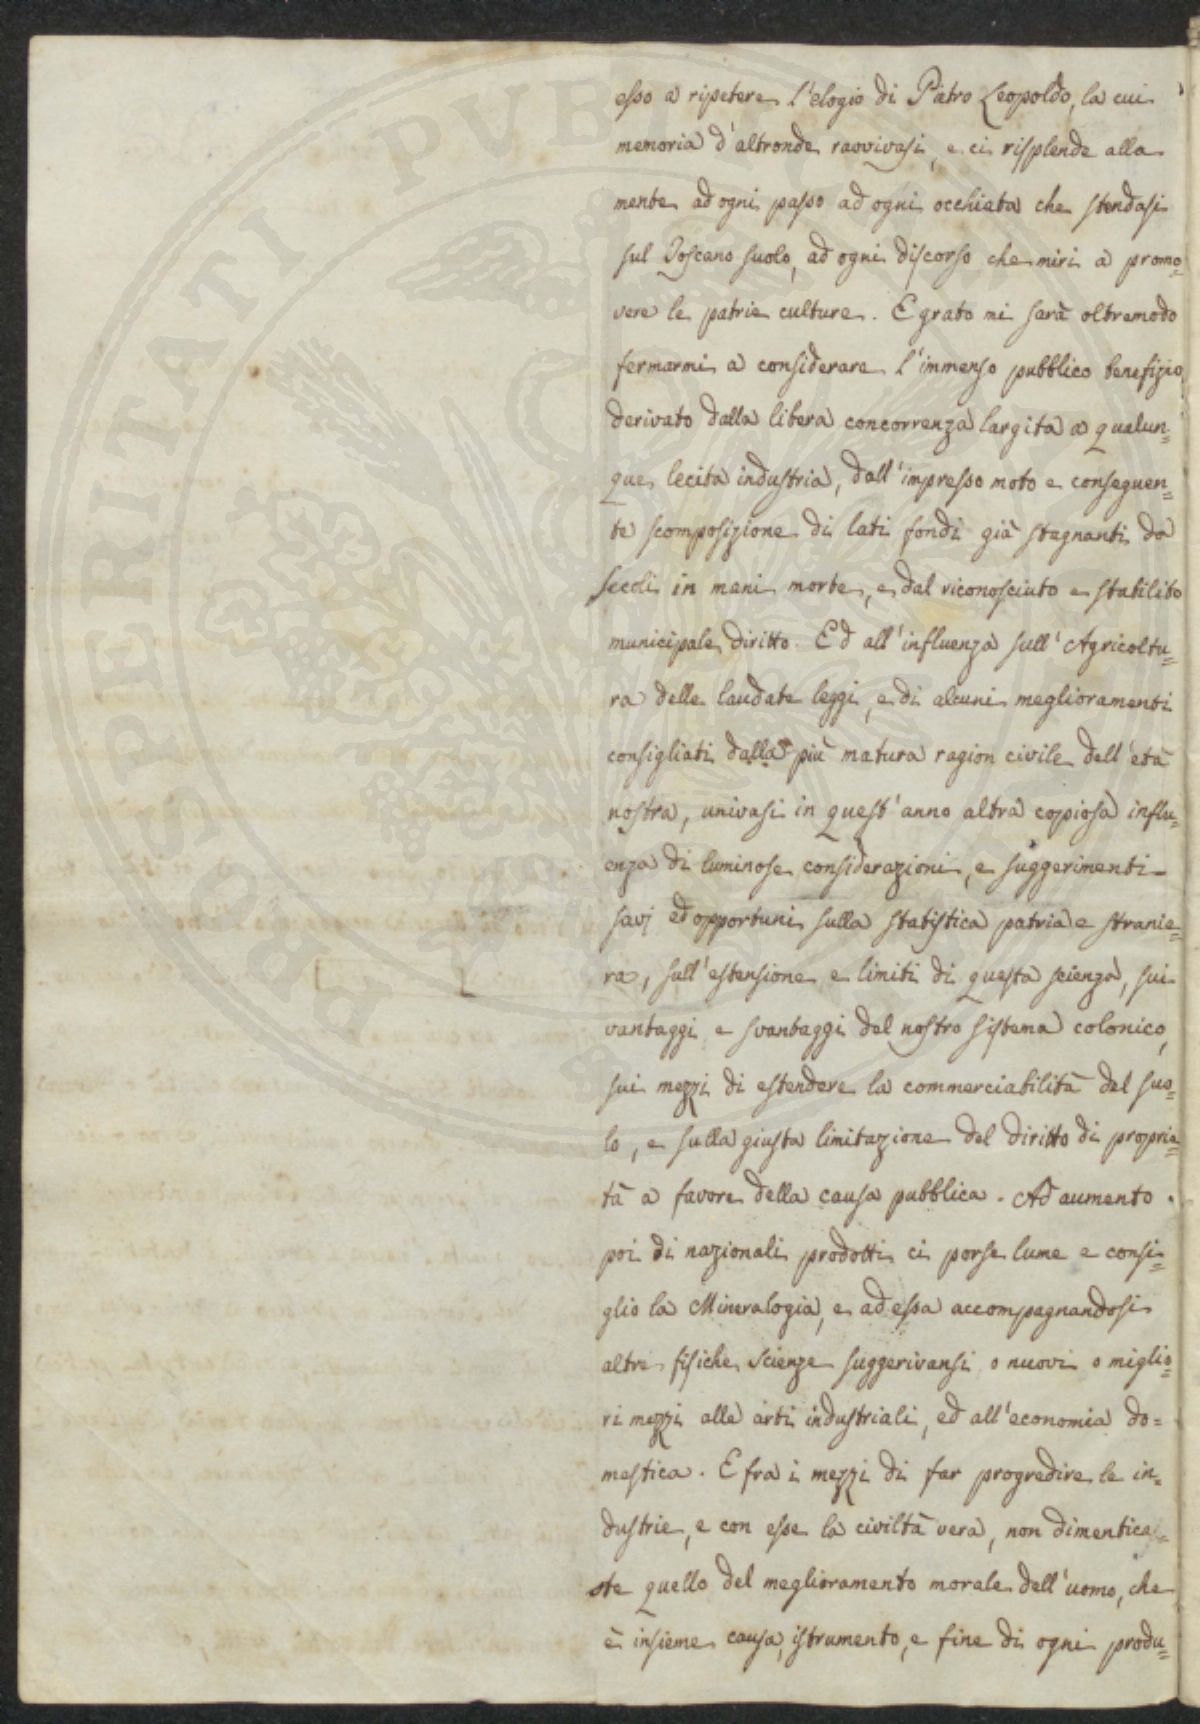 esso a ripetere l'elogio di Pietro Leopoldo, la cui
memoria d'altronde ravvivasi, e ci risplende alla
mente ad ogni passo ad ogni occhiata che stendasi
sul Toscano suolo, ad ogni discorso che miri a promo=
vere le patrie culture. E grato mi sarà oltremodo
fermarmi a considerare l'immenso pubblico benefizio
derivato dalla libera concorrenza largita a qualun=
que lecita industria, dall'impresso moto e conseguen=
te scomposizione di lati fondi già stagnanti da
secoli in mani morte, e dal riconosciuto e stabilito
municipale diritto. Ed all'influenza sull'Agricoltu=
ra delle laudate leggi, e di alcuni meglioramenti
consigliati dalla più matura ragion civile dell'età
nostra, univasi in quest'anno altra copiosa influ=
enza di luminose considerazioni, e suggerimenti
savj ed opportuni sulla statistica patria e stranie=
ra, sull'estensione e limiti di questa scienza, sui
vantaggi e svantaggi del nostro sistema colonico,
sui mezzi di estendere la commerciabilità del suo=
lo, e sulla giusta limitazione del diritto di proprie=
tà a favore della causa pubblica. Ad aumento
poi di nazionali prodotti ci porse lume e consi=
glio la Mineralogia, e ad essa accompagnandosi
altre fisiche scienze suggerivansi o nuovi o miglio=
ri mezzi alle arti industriali, ed all'economia do=
mestica. E fra i mezzi di far progredire le in=
dustrie, e con esse la civiltà vera, non dimentica=
ste quello del meglioramento morale dell'uomo, che
è insieme causa, istrumento, e fine di ogni produ=
PROSPERITATI PUBLICAE